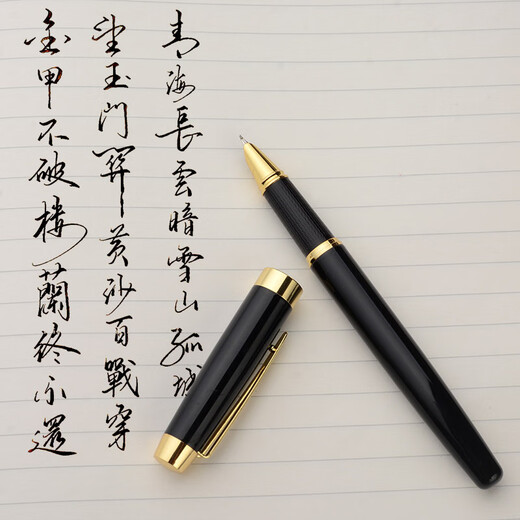 青海長雲暗雪山孤城
望玉門關黄沙百戰穿
金甲不破樓蘭終不還